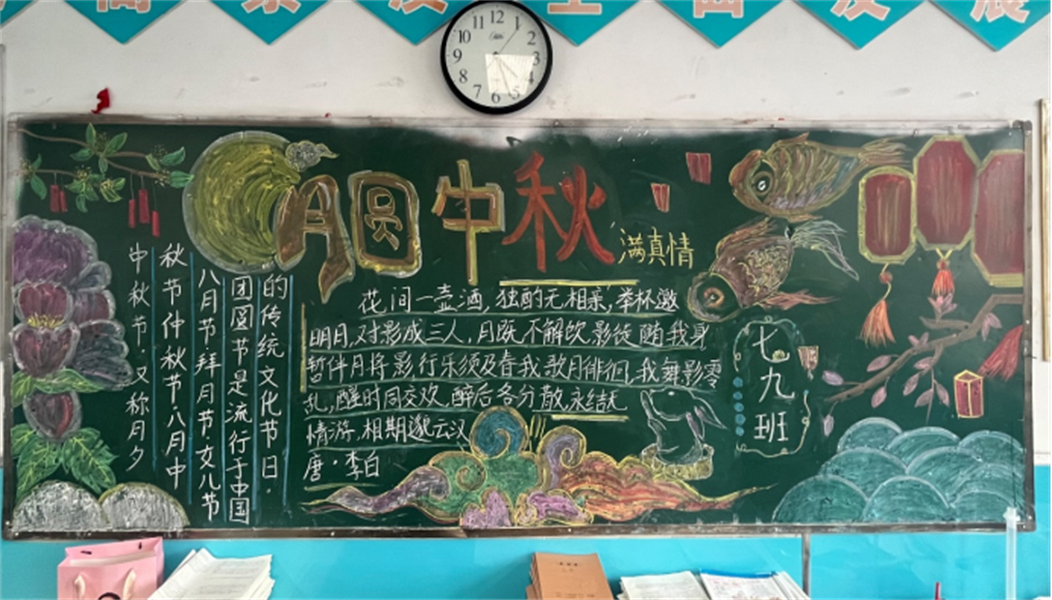 月圆中秋
满真情
中秋节.又称月夕
秋节仲秋节.八月中
八月节拜月节.女儿节
团圆节是流行于中国
的传统文化节日.
花间一壶酒,独酌无相亲,举杯邀
明月,对影成三人,月既不解饮,影徒随我身
暂伴月将影行乐须及春我歌月徘徊,我舞影零
乱,醒时同交欢,醉后各分散,永结无
情游,相期邈云汉
唐·李白
七九班